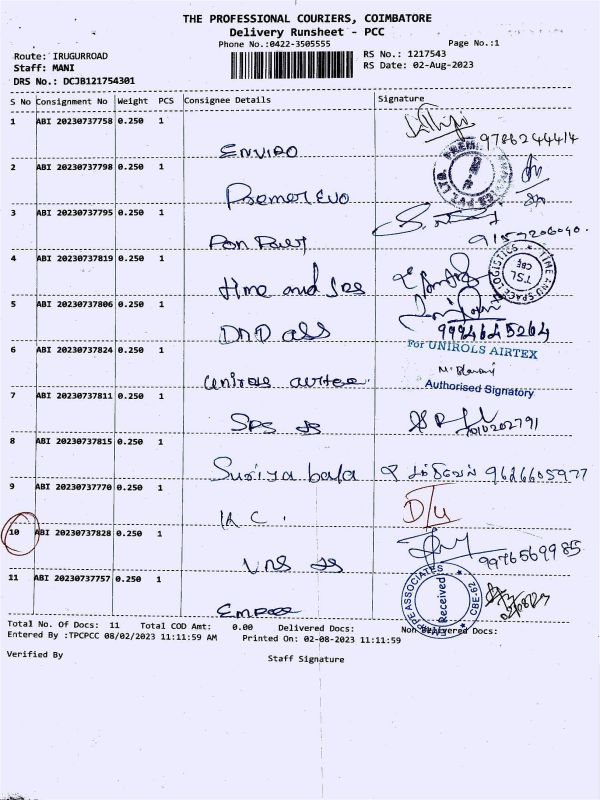 THE PROFESSIONAL COURIERS, COIMBATORE
Delivery Runsheet - PCC
Phone No.:0422-3505555
Page No.:1
Route: IRUGURROAD
RS No.: 1217543
Staff: MANI
RS Date: 02-Aug-2023
DRS No.: DCJB121754301
S No Consignment No Weight PCS Consignee Details Signature
1 ABI 20230737758 0.250 1
ENVIRO 9786244414
2 ABI 20230737798 0.250 1
3 ABI 20230737795 0.250 1
9157206040.
4 ABI 20230737819 0.250 1
Time and Sps
TIME AND SPACE LOGISTICS
TSL
CBE
5 ABI 20230737806 0.250 1
DND ass 9994645264
For UNIROLS AIRTEX
6 ABI 20230737824 0.250 1
unirols airtex
Authorised Signatory
7 ABI 20230737811 0.250 1
SPS
8 ABI 20230737815 0.250 1
Suriya bala 9626605977
9 ABI 20230737770 0.250 1
IA C. D/L
10 ABI 20230737828 0.250 1
VNS 9976569985
11 ABI 20230737757 0.250 1
ASSOCIATES
Received
CBE-62
Total No. Of Docs: 11 Total COD Amt: 0.00 Delivered Docs: Non Delivered Docs:
Entered By :TPCPCC 08/02/2023 11:11:59 AM Printed On: 02-08-2023 11:11:59
Verified By
Staff Signature